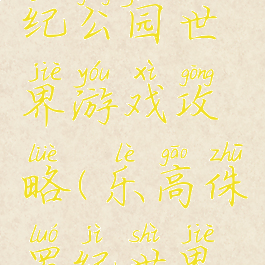 纪公园世
jiè yóu xì gōng
界游戏攻
lüè lè gāo zhū
略(乐高侏
luó jì shì jiè
罗纪世界